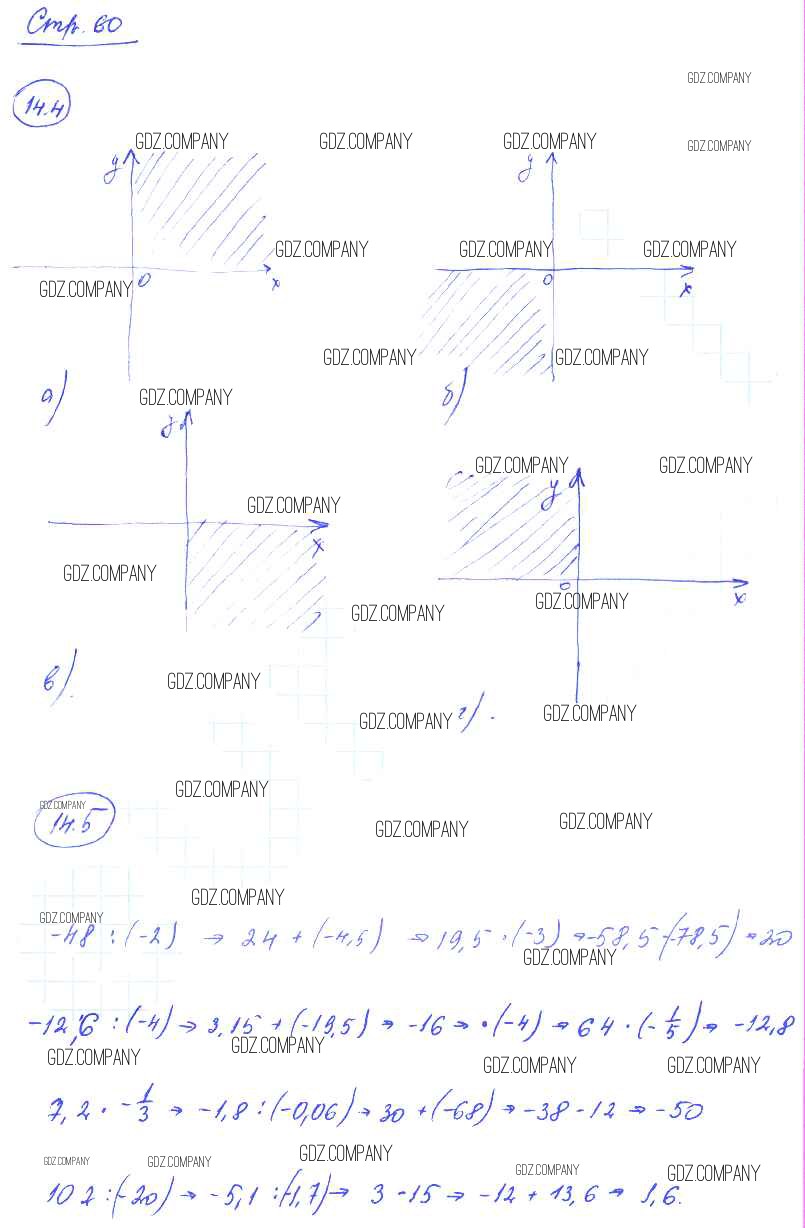 Стр. 60
GDZ.COMPANY
14.4
GDZ.COMPANY GDZ.COMPANY GDZ.COMPANY GDZ.COMPANY
y y
GDZ.COMPANY GDZ.COMPANY GDZ.COMPANY
GDZ.COMPANY 0 x 0 x
GDZ.COMPANY GDZ.COMPANY
а) GDZ.COMPANY б)
y
GDZ.COMPANY GDZ.COMPANY
y
GDZ.COMPANY
x
GDZ.COMPANY 0 x
GDZ.COMPANY GDZ.COMPANY
в). GDZ.COMPANY
GDZ.COMPANY г). GDZ.COMPANY
GDZ.COMPANY
GDZ.COMPANY
14.5 GDZ.COMPANY GDZ.COMPANY
GDZ.COMPANY
GDZ.COMPANY
-48 : (-2) → 24 + (-4,5) → 19,5 · (-3) → -58,5 -(-78,5) → 20
GDZ.COMPANY
-12,6 : (-4) → 3,15 + (-19,5) → -16 → · (-4) → 64 · (-1/5) → -12,8
GDZ.COMPANY GDZ.COMPANY GDZ.COMPANY GDZ.COMPANY
7,2 · -1/3 → -1,8 : (-0,06) → 30 + (-68) → -38 - 12 → -50
GDZ.COMPANY GDZ.COMPANY GDZ.COMPANY GDZ.COMPANY GDZ.COMPANY
102 : (-20) → -5,1 : (-1,7) → 3 - 15 → -12 + 13,6 → 1,6.